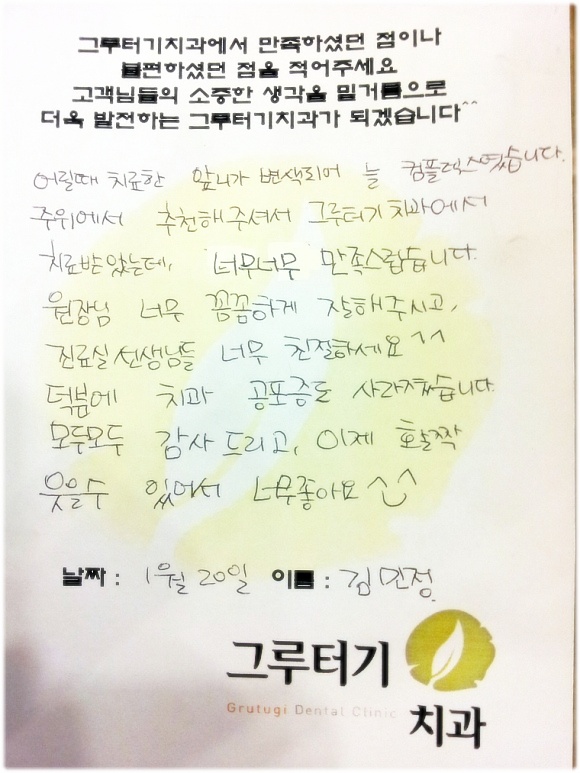 그루터기치과에서 만족하셨던 점이나
불편하셨던 점을 적어주세요
고객님들의 소중한 생각을 밑거름으로
더욱 발전하는 그루터기치과가 되겠습니다^^
어릴때 치료한 앞니가 변색되어 늘 컴플렉스였습니다.
주위에서 추천해주셔서 그루터기치과에서
치료받았는데, 너무너무 만족스럽습니다.
원장님 너무 꼼꼼하게 잘해주시고,
진료실선생님들 너무 친절하세요^^
덕분에 치과 공포증도 사라졌습니다.
모두모두 감사드리고, 이제 활짝
웃을수 있어서 너무좋아요^^
날짜 : 1월 20일 이름 : 김민정.
그루터기
Grutugi Dental Clinic
치과